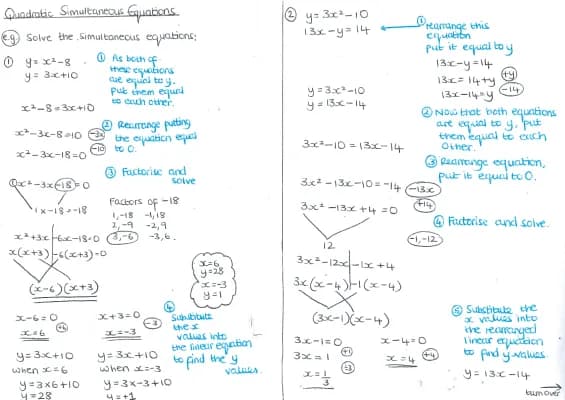 Quadratic Simultaneous Equations
e.g. Solve the simultaneous equations;
① y = x²-8
y = 3x+10
① As both of
these equations
are equal to y,
put them equal
to each other.
x²-8=3x+10
x²-3x-8=10 -3x
x²-3x-18=0 -10
② Rearrange putting
the equation equal
to 0.
③ Factorise and
solve
①x²-3x-18=0
1x-18=-18
Factors of -18
1,-18 -1,18
2,-9 -2,9
3,-6 -3,6.
x²+3x-6x-18=0
x(x+3)-6(x+3)=0
(x-6)(x+3)
x=6
y=28
x=-3
y=1
x-6=0 x+3=0
x=6 +6 x=-3 -3
y=3x+10 y=3x+10
when x=6 when x=-3
y=3x6+10 y=3x-3+10
y=28 y=+1
④ Substitute
the x
values into
the linear equation
to find the y
values.
② y=3x²-10
13x-y=14
① Rearrange this
equation
put it equal to y
13x-y=14
13x=14+y +y
13x-14=y -14
y=3x²-10
y=13x-14
② Now that both equations
are equal to y, put
them equal to each
other.
3x²-10=13x-14
③ Rearrange equation,
put it equal to 0.
3x²-13x-10=-14 -13x
3x²-13x+4=0 +14
④ Factorise and solve.
12
-1,-12
3x²-12x-1x+4
3x(x-4)-1(x-4)
(3x-1)(x-4)
3x-1=0 x-4=0
3x=1 +1 x=4 +4
x=1/3 ÷3
⑤ Substitute the
x values into
the rearranged
linear equation
to find y values.
y=13x-14
turn over